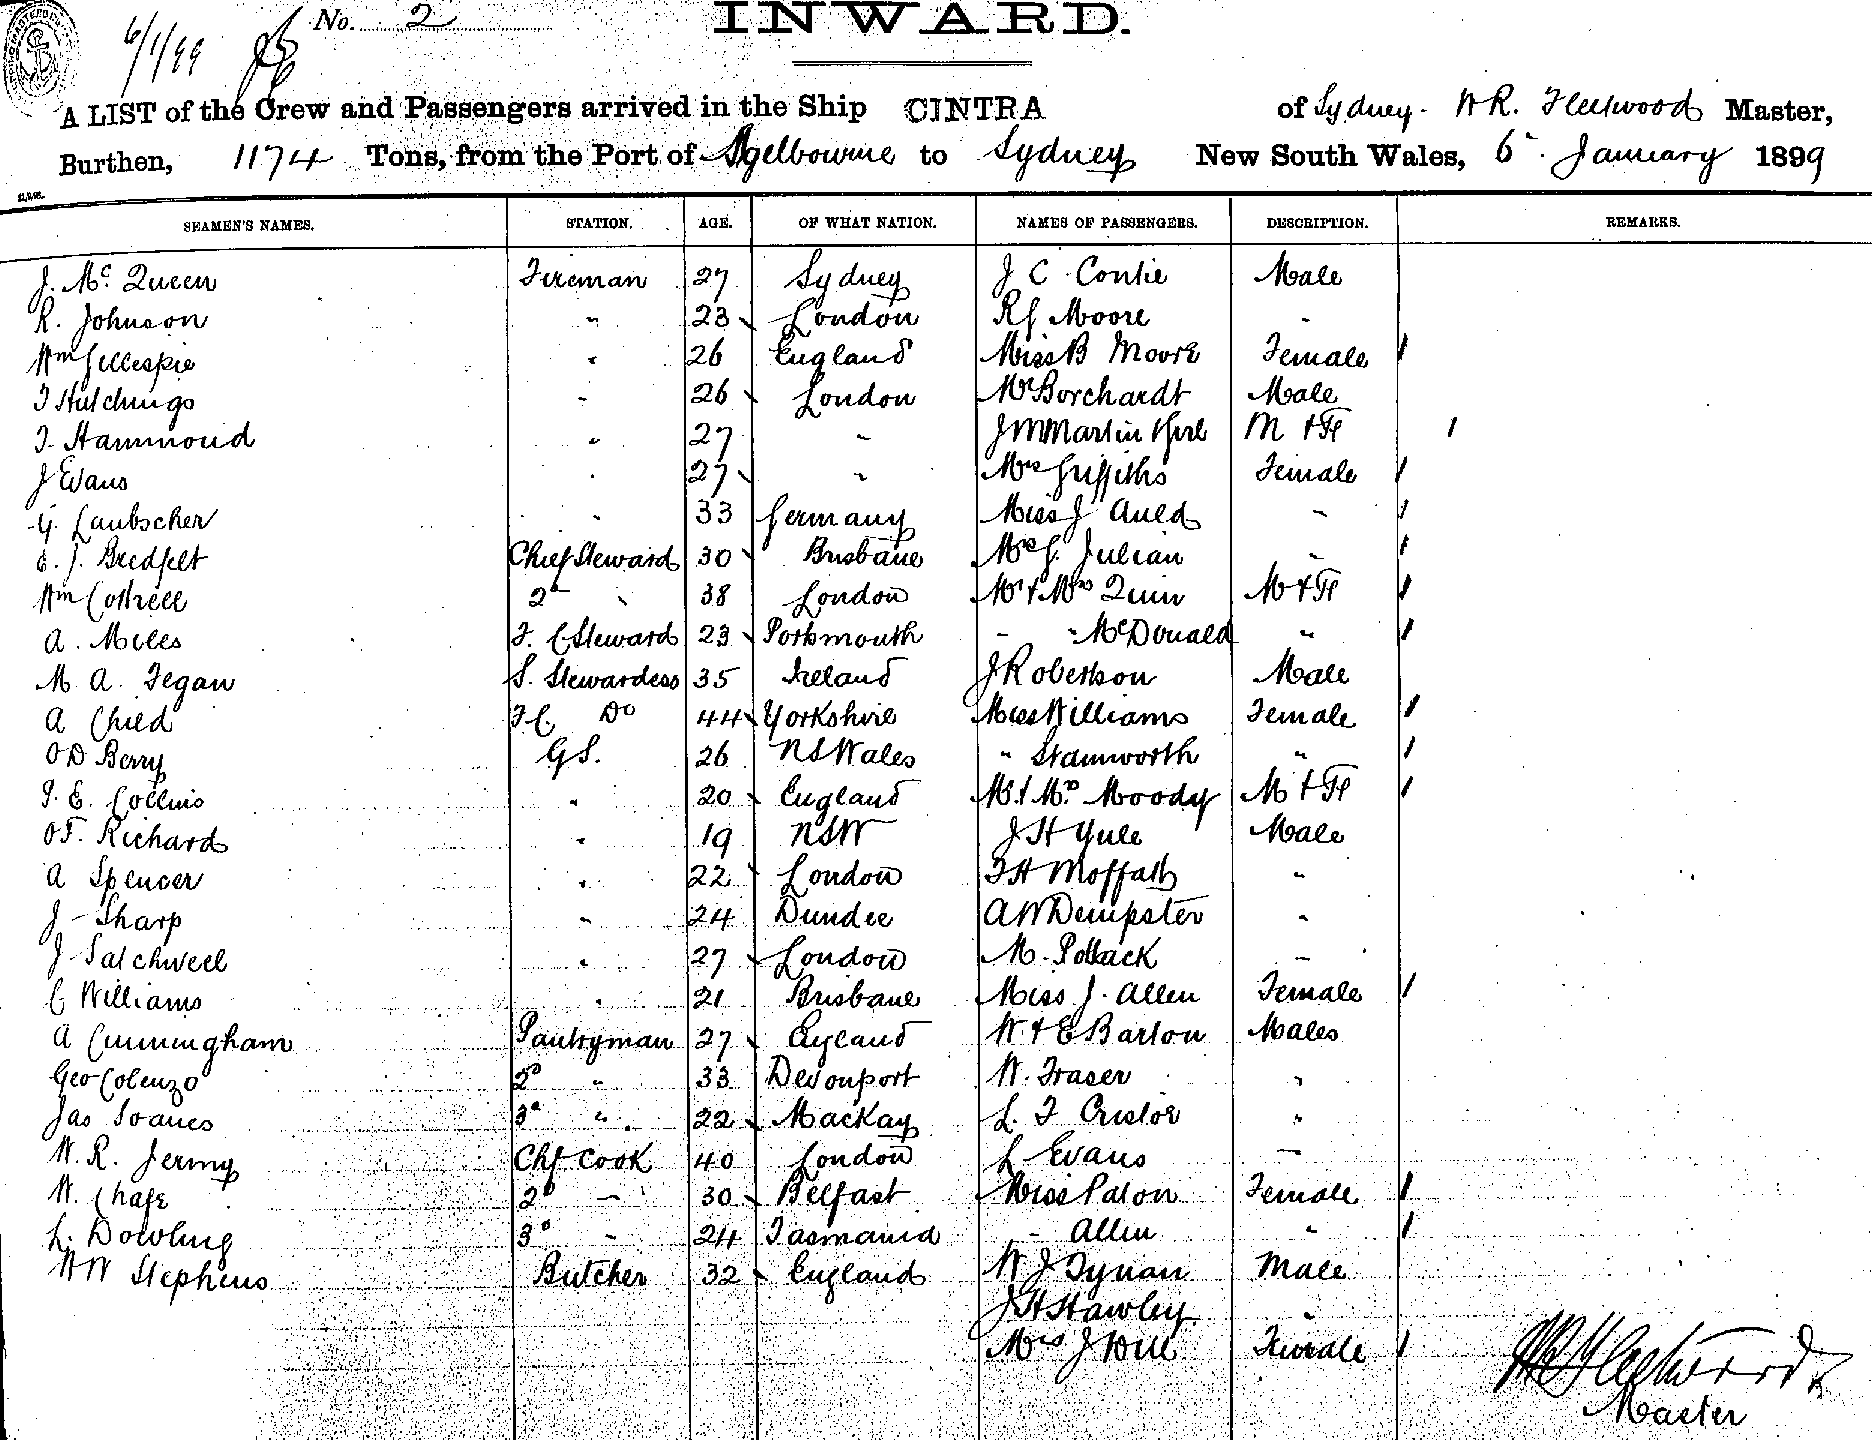 6/1/99 No. 2 INWARD.
A LIST of the Crew and Passengers arrived in the Ship CINTRA of Sydney. W R. Fleetwood Master,
Burthen, 1174 Tons, from the Port of Melbourne to Sydney New South Wales, 6 January 1899
SEAMEN'S NAMES. STATION. AGE. OF WHAT NATION. NAMES OF PASSENGERS. DESCRIPTION. REMARKS.
J. Mc Queen Fireman 27 Sydney J C Contie Male
R. Johnson " 23 London R J Moore "
Wm Gillespie " 26 England Miss B Moore Female
T Hutchings " 26 London Mr Borchardt Male
T. Hammond " 27 " J M Martin & girl M & F
J Evans " 27 " Mrs Griffiths Female
G. Laubscher " 33 Germany Miss J Auld "
E. J. Bredfelt Chief Steward 30 Brisbane Mrs G. Julian "
Wm Cottrell 2d " 38 London Mr & Mrs Quin M & F
A. Miles F. C Steward 23 Portsmouth " " McDonald "
M. A. Fegan S. Stewardess 35 Ireland J Robertson Male
A Child F. C. Do 44 Yorkshire Miss Williams Female
O D Berry G S. 26 N S Wales " Stamworth "
P. E. Collins " 20 England Mr & Mrs Moody M & F
O F. Richard " 19 NSW J H Yule Male
A Spencer " 22 London F H Moffatt "
J Sharp " 24 Dundee A W Dempster "
J Satchwell " 27 London M. Pollack "
C Williams " 21 Brisbane Miss J. Allen Female
A Cunningham Pantryman 27 England W & E Barton Males
Geo Colenzo 2d " 33 Devonport W. Fraser "
Jas Soanes 3d " 22 Mackay L. F Cristoe "
W. R. Jermy Chf Cook 40 London L Evans "
W. Chafe 2d " 30 Belfast Miss Paton Female
L. Dowling 3d " 24 Tasmania " Allen "
W W Stephens Butcher 32 England W J Tynan Male
J H Hawley "
Mrs J Hill Female
W R Fleetwood
Master